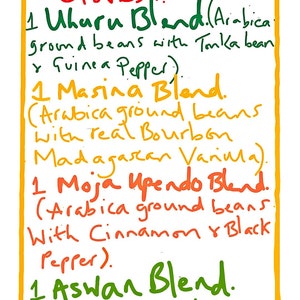 1 Uhuru Blend. (Arabica
ground beans with Tonka bean
& Guinea Pepper).
1 Masina Blend.
(Arabica ground beans
with real Bourbon
Madagascan Vanilla).
1 Moja Upendo Blend.
(Arabica ground beans
With Cinnamon & Black
Pepper).
1 Aswan Blend.